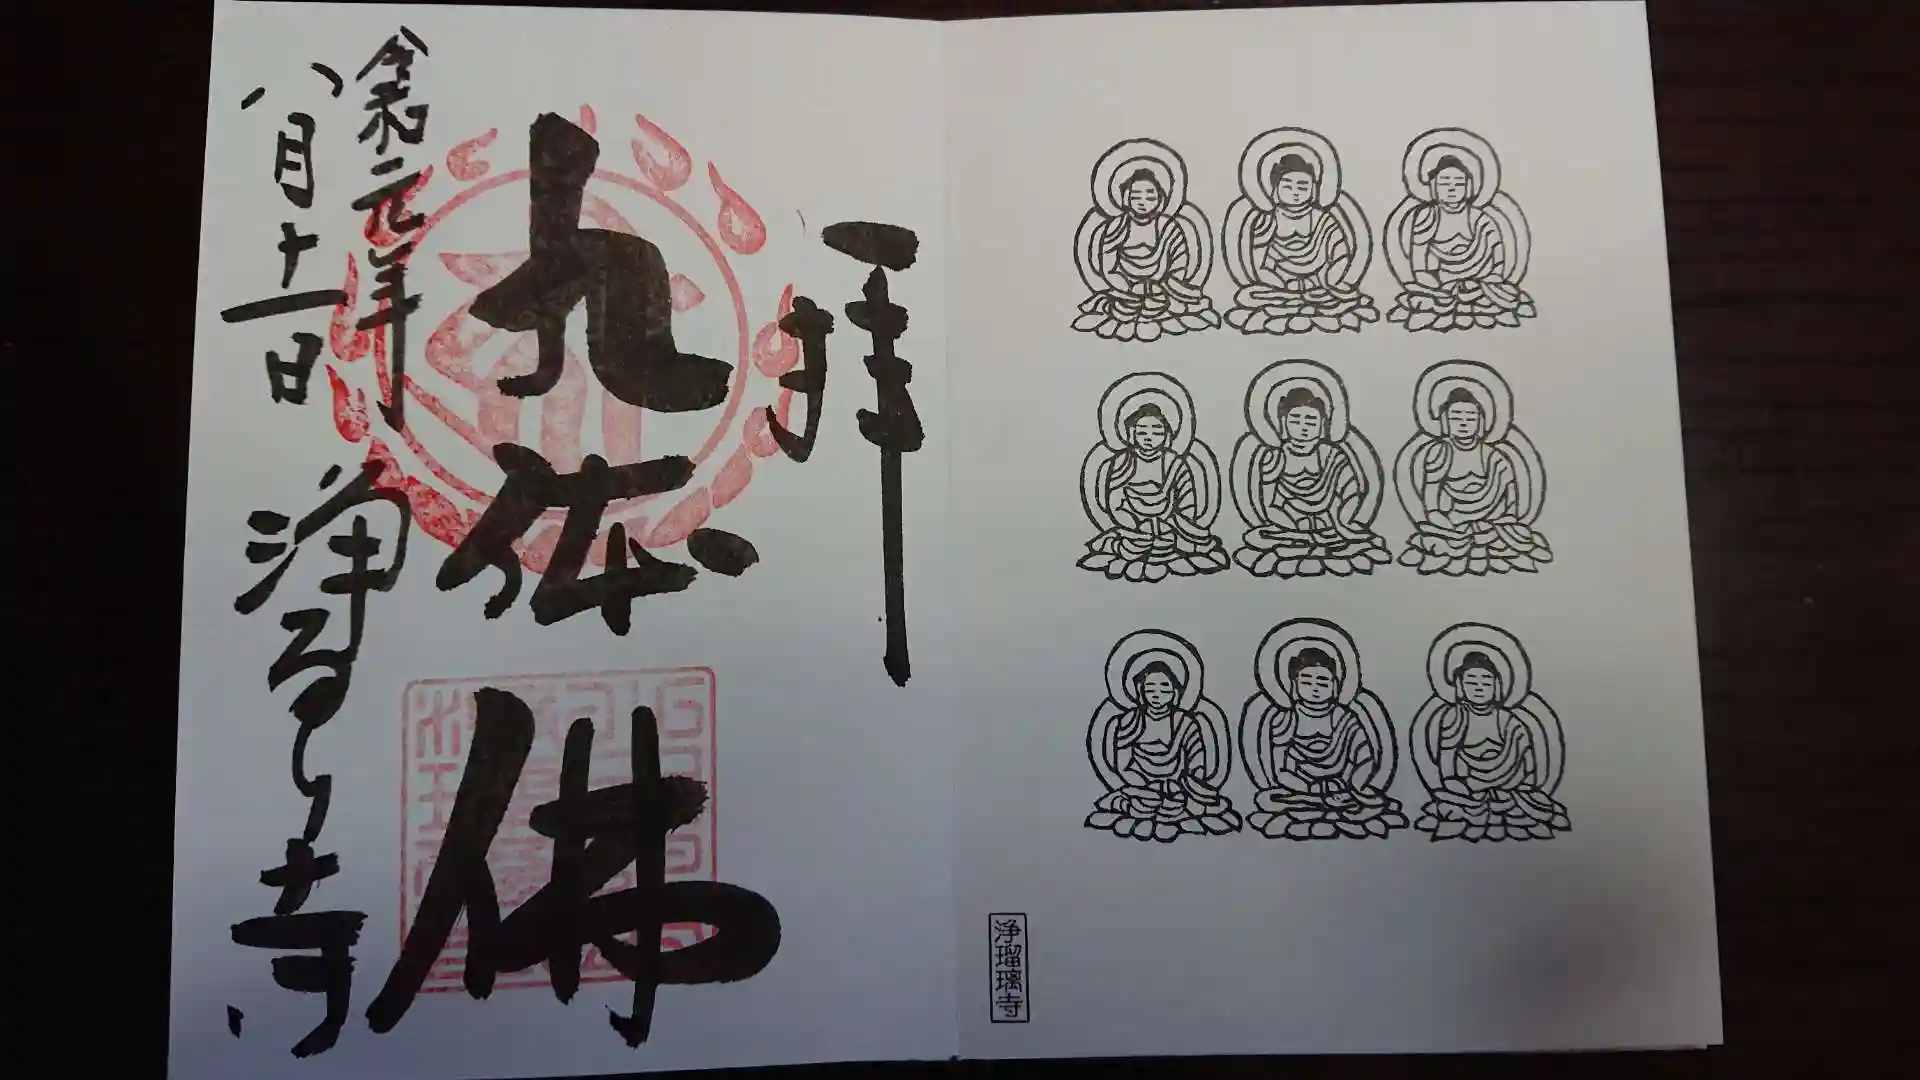 拝
九体佛
令和元年
八月十一日
浄るり寺
浄瑠璃寺